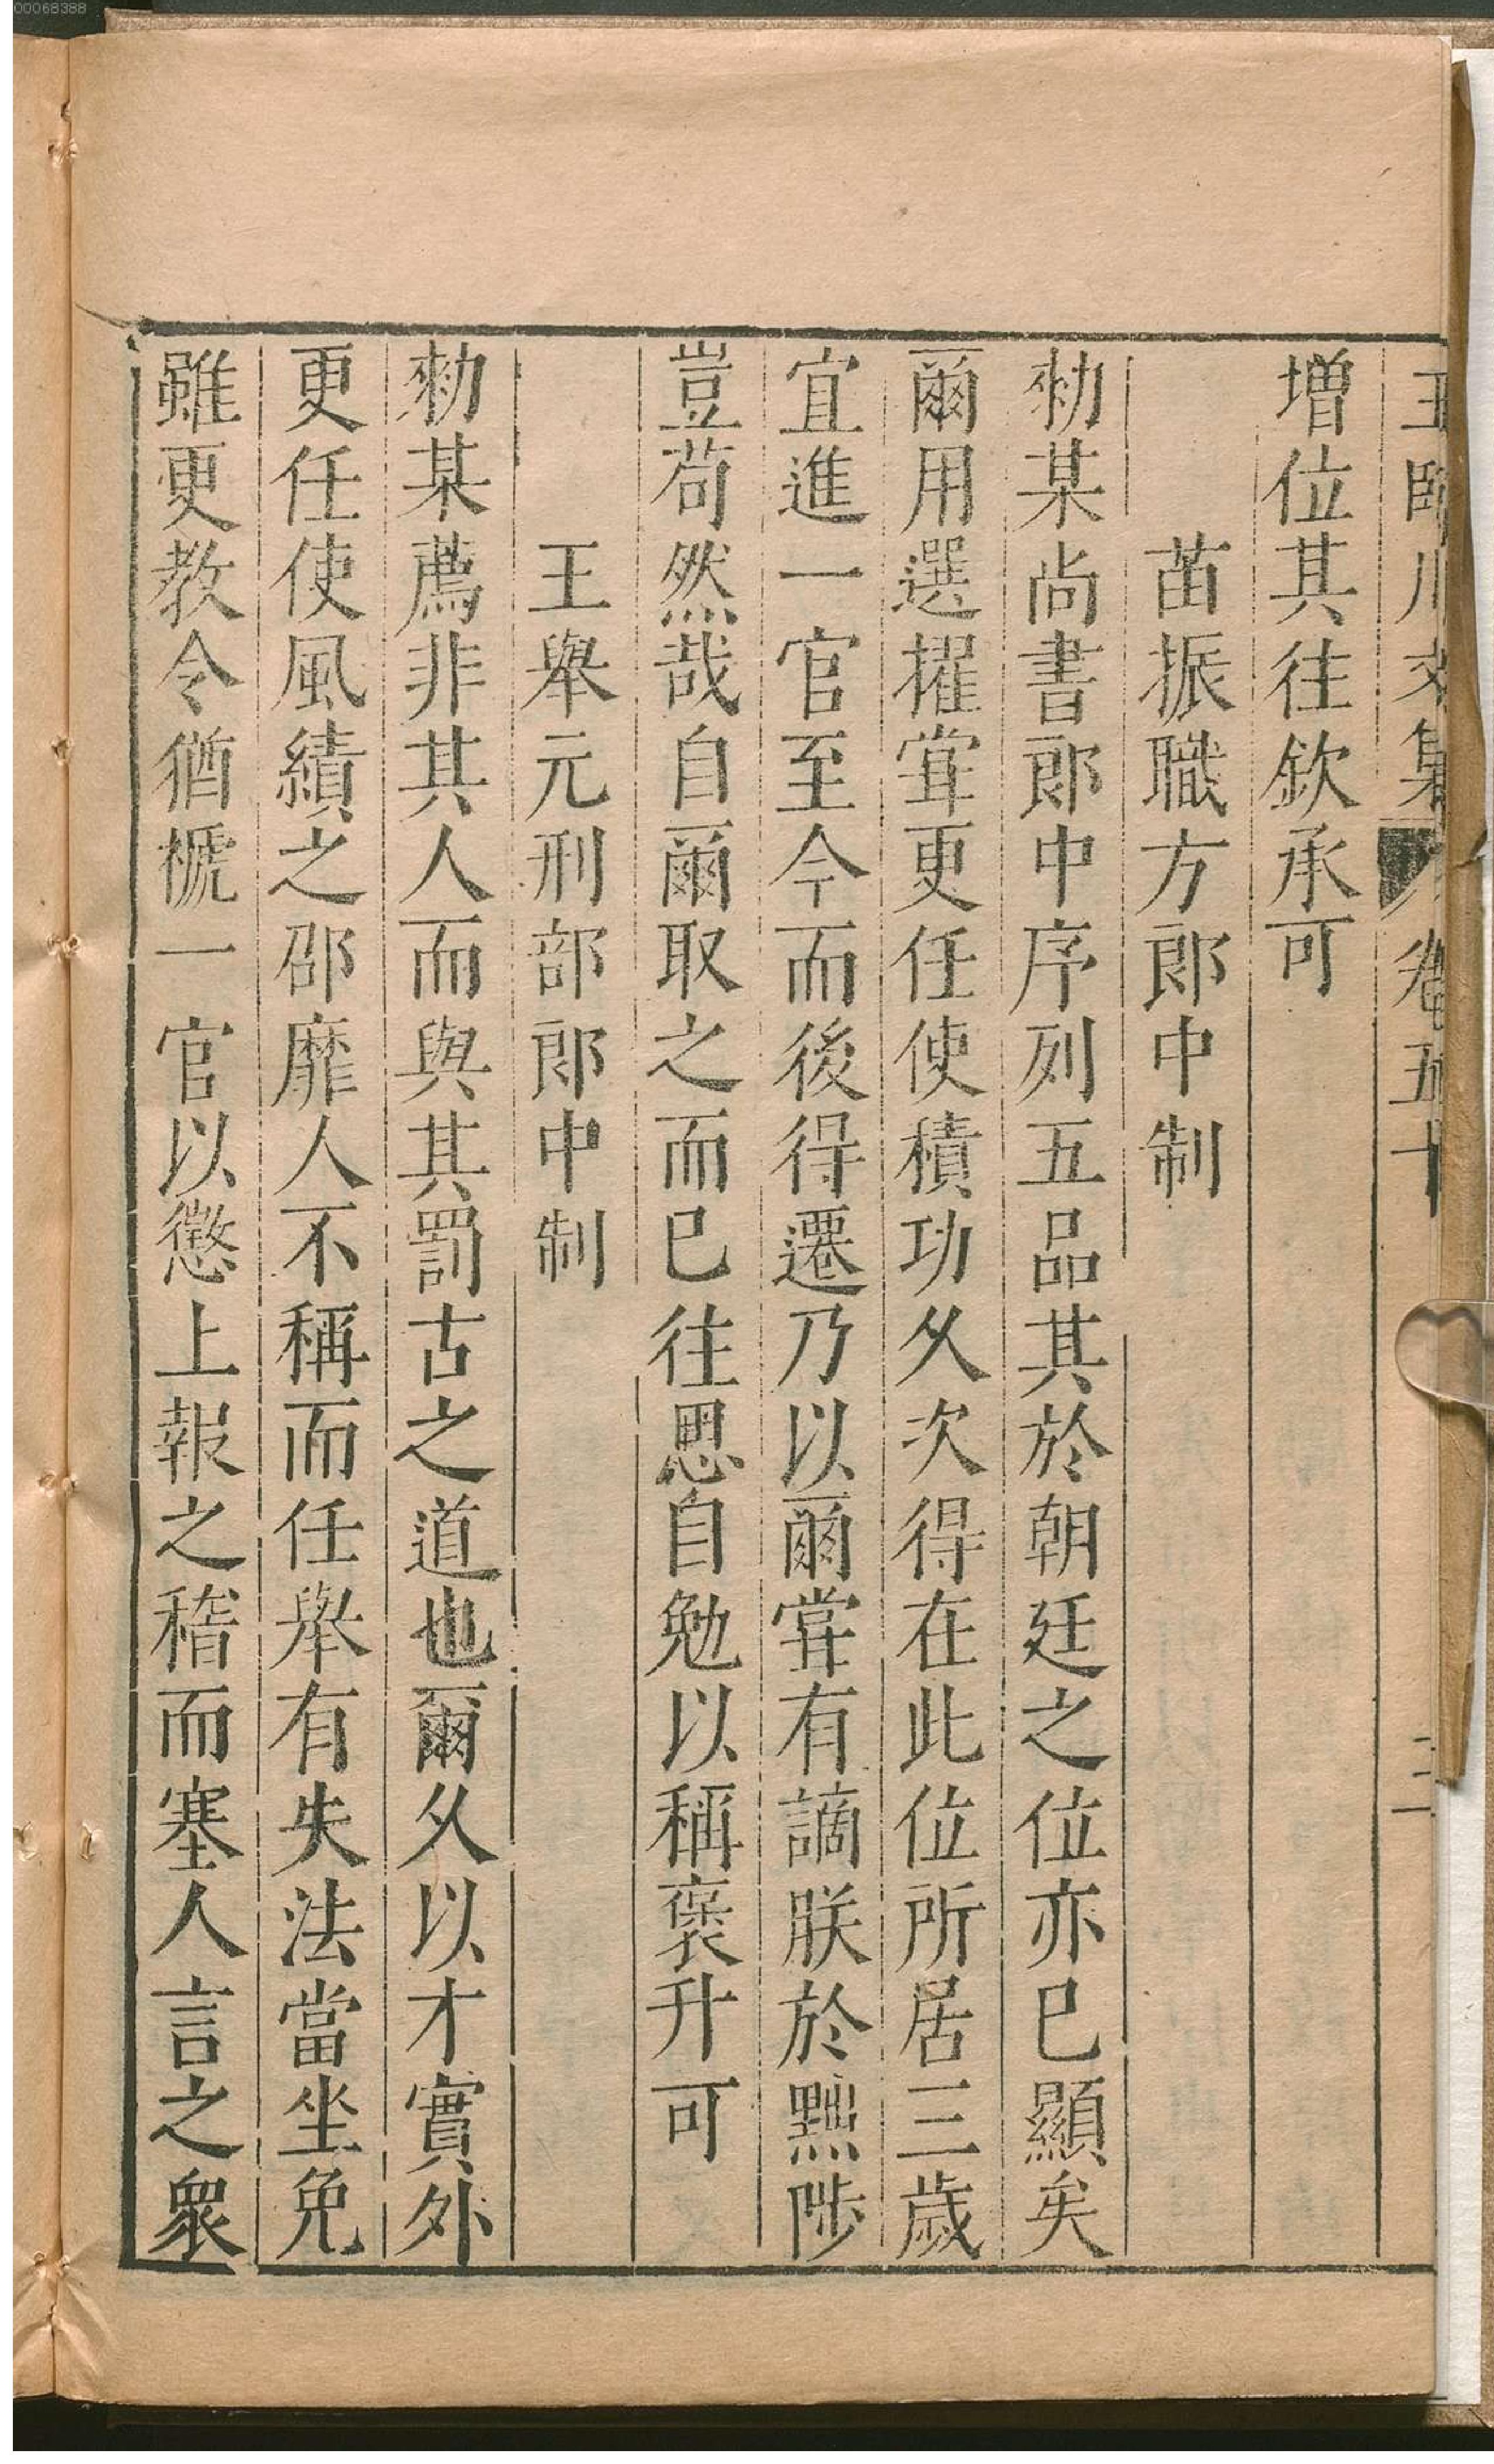 00068388
王臨川文集 卷五十 二
增位其往欽承可
苗振職方郎中制
勑某尚書郎中序列五品其於朝廷之位亦已顯矣
爾用選擢甞更任使積功久次得在此位所居三歲
宜進一官至今而後得遷乃以爾甞有謫朕於黜陟
豈苟然哉自爾取之而已往思自勉以稱褒升可
王舉元刑部郎中制
勑某薦非其人而與其罰古之道也爾久以才實外
更任使風績之邵靡人不稱而任舉有失法當坐免
雖更教令猶褫一官以懲上報之稽而塞人言之衆